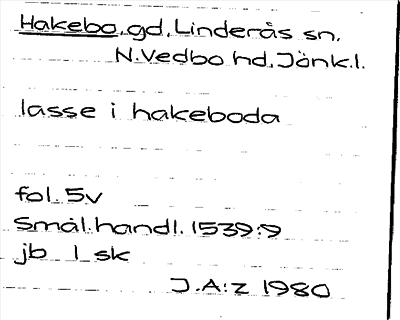 Hakebo, gd, Linderås sn,
N. Vedbo hd, Jönk. l.
lasse i hakeboda
fol. 5v
Smål. handl. 1539:9
jb 1 sk
J.A:z 1980